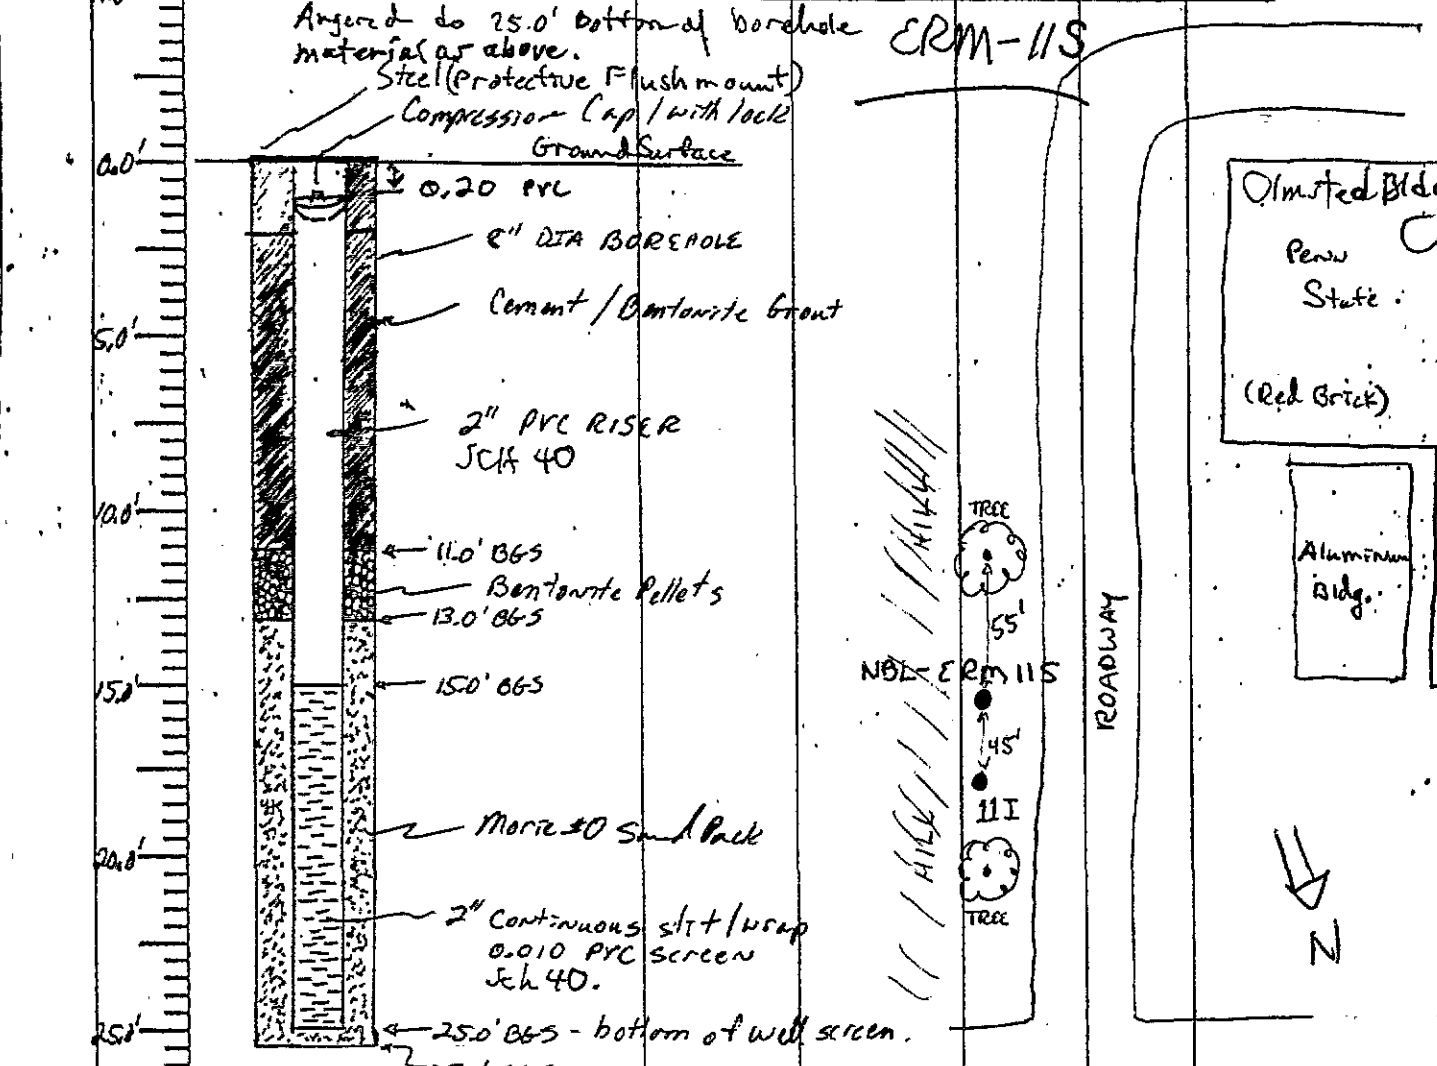 Augered to 25.0' bottom of borehole
material as above.
ERM-11S
Steel (Protective Flushmount)
Compression Cap / with lock
Ground Surface
0.0'
0.20 PVC
8" DIA BOREHOLE
Cement / Bentonite Grout
5.0'
2" PVC RISER
SCH 40
10.0'
11.0' BGS
Bentonite Pellets
13.0' BGS
15.0'
15.0' BGS
Morie #0 Sand Pack
20.0'
2" Continuous slit / wrap
0.010 PVC screen
Sch 40.
25.0'
25.0' BGS - bottom of well screen.
Olmsted Bldg
Penn
State
(Red Brick)
Aluminum
Bldg.
ROADWAY
HILL
TREE
55'
NBL-ERM 11S
45'
11I
HILL
TREE
N